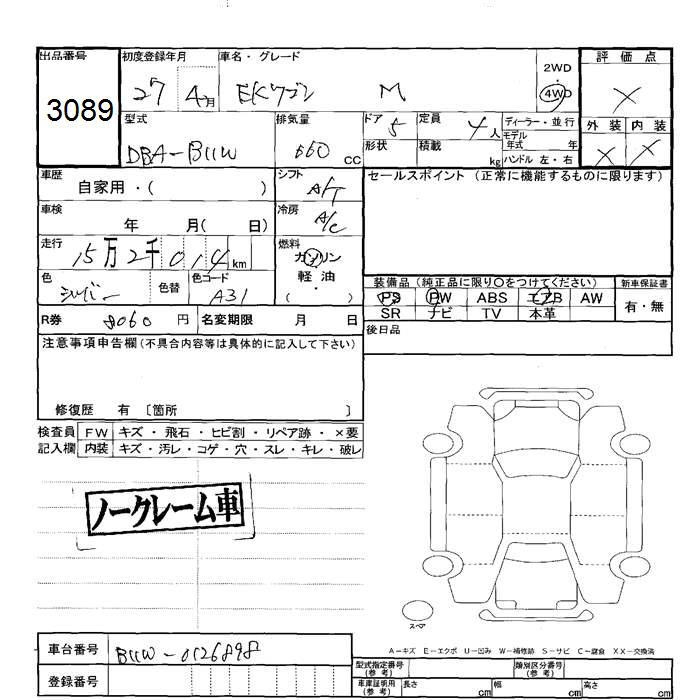 出品番号
3089
初度登録年月
27 4月
車名・グレード
EKワゴン M
2WD
4WD
評価点
X
外装 内装
X X
型式
DBA-B11W
排気量
660 CC
ドア 5
形状
定員 4人
積載 kg
ディーラー・並行
モデル年式 年
ハンドル 左・右
車歴
自家用・( )
シフト
A/T
車検
年 月( 日)
冷房
A/C
走行
15万2千014km
燃料
ガソリン
軽油
( )
色
シルバー
色替
色コード
A31
R券 8060円
名変期限 月 日
セールスポイント(正常に機能するものに限ります)
装備品(純正品に限り○をつけてください)
PS PW ABS エアB AW
SR ナビ TV 本革
新車保証書
有・無
後日品
注意事項申告欄(不具合内容等は具体的に記入して下さい)
修復歴 有 〔箇所 〕
検査員記入欄
FW キズ・飛石・ヒビ割・リペア跡・×要
内装 キズ・汚レ・コゲ・穴・スレ・キレ・破レ
ノークレーム車
スペア
A-キズ E-エクボ U-凹み W-補修跡 S-サビ C-腐食 XX-交換済
車台番号 B11W-0126898
登録番号
型式指定番号(参考)
類別区分番号(参考)
車庫証明用(参考) 長さ cm 幅 cm 高さ cm